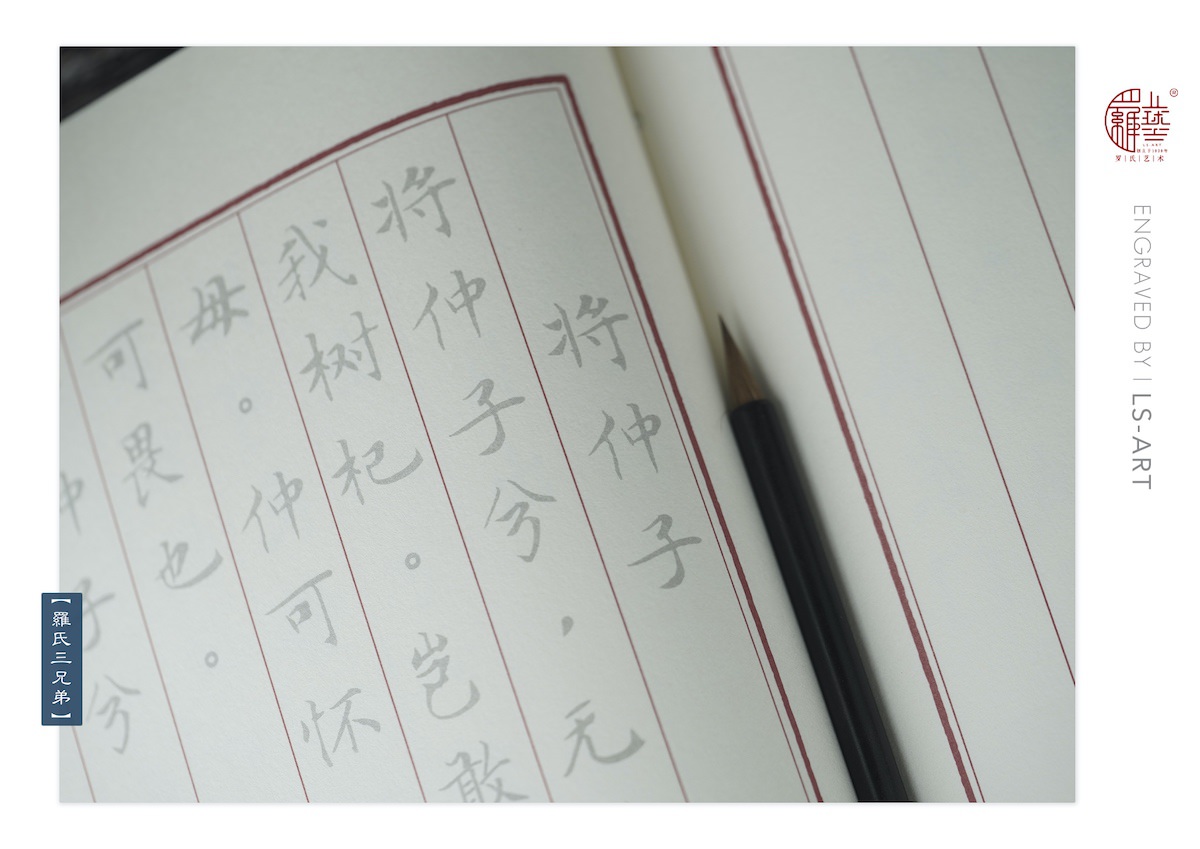 将仲子
将仲子兮，无
我树杞。岂敢
母。仲可怀
可畏也。
仲子兮
羅
罗氏艺术
ENGRAVED BY | LS-ART
【羅氏三兄弟】